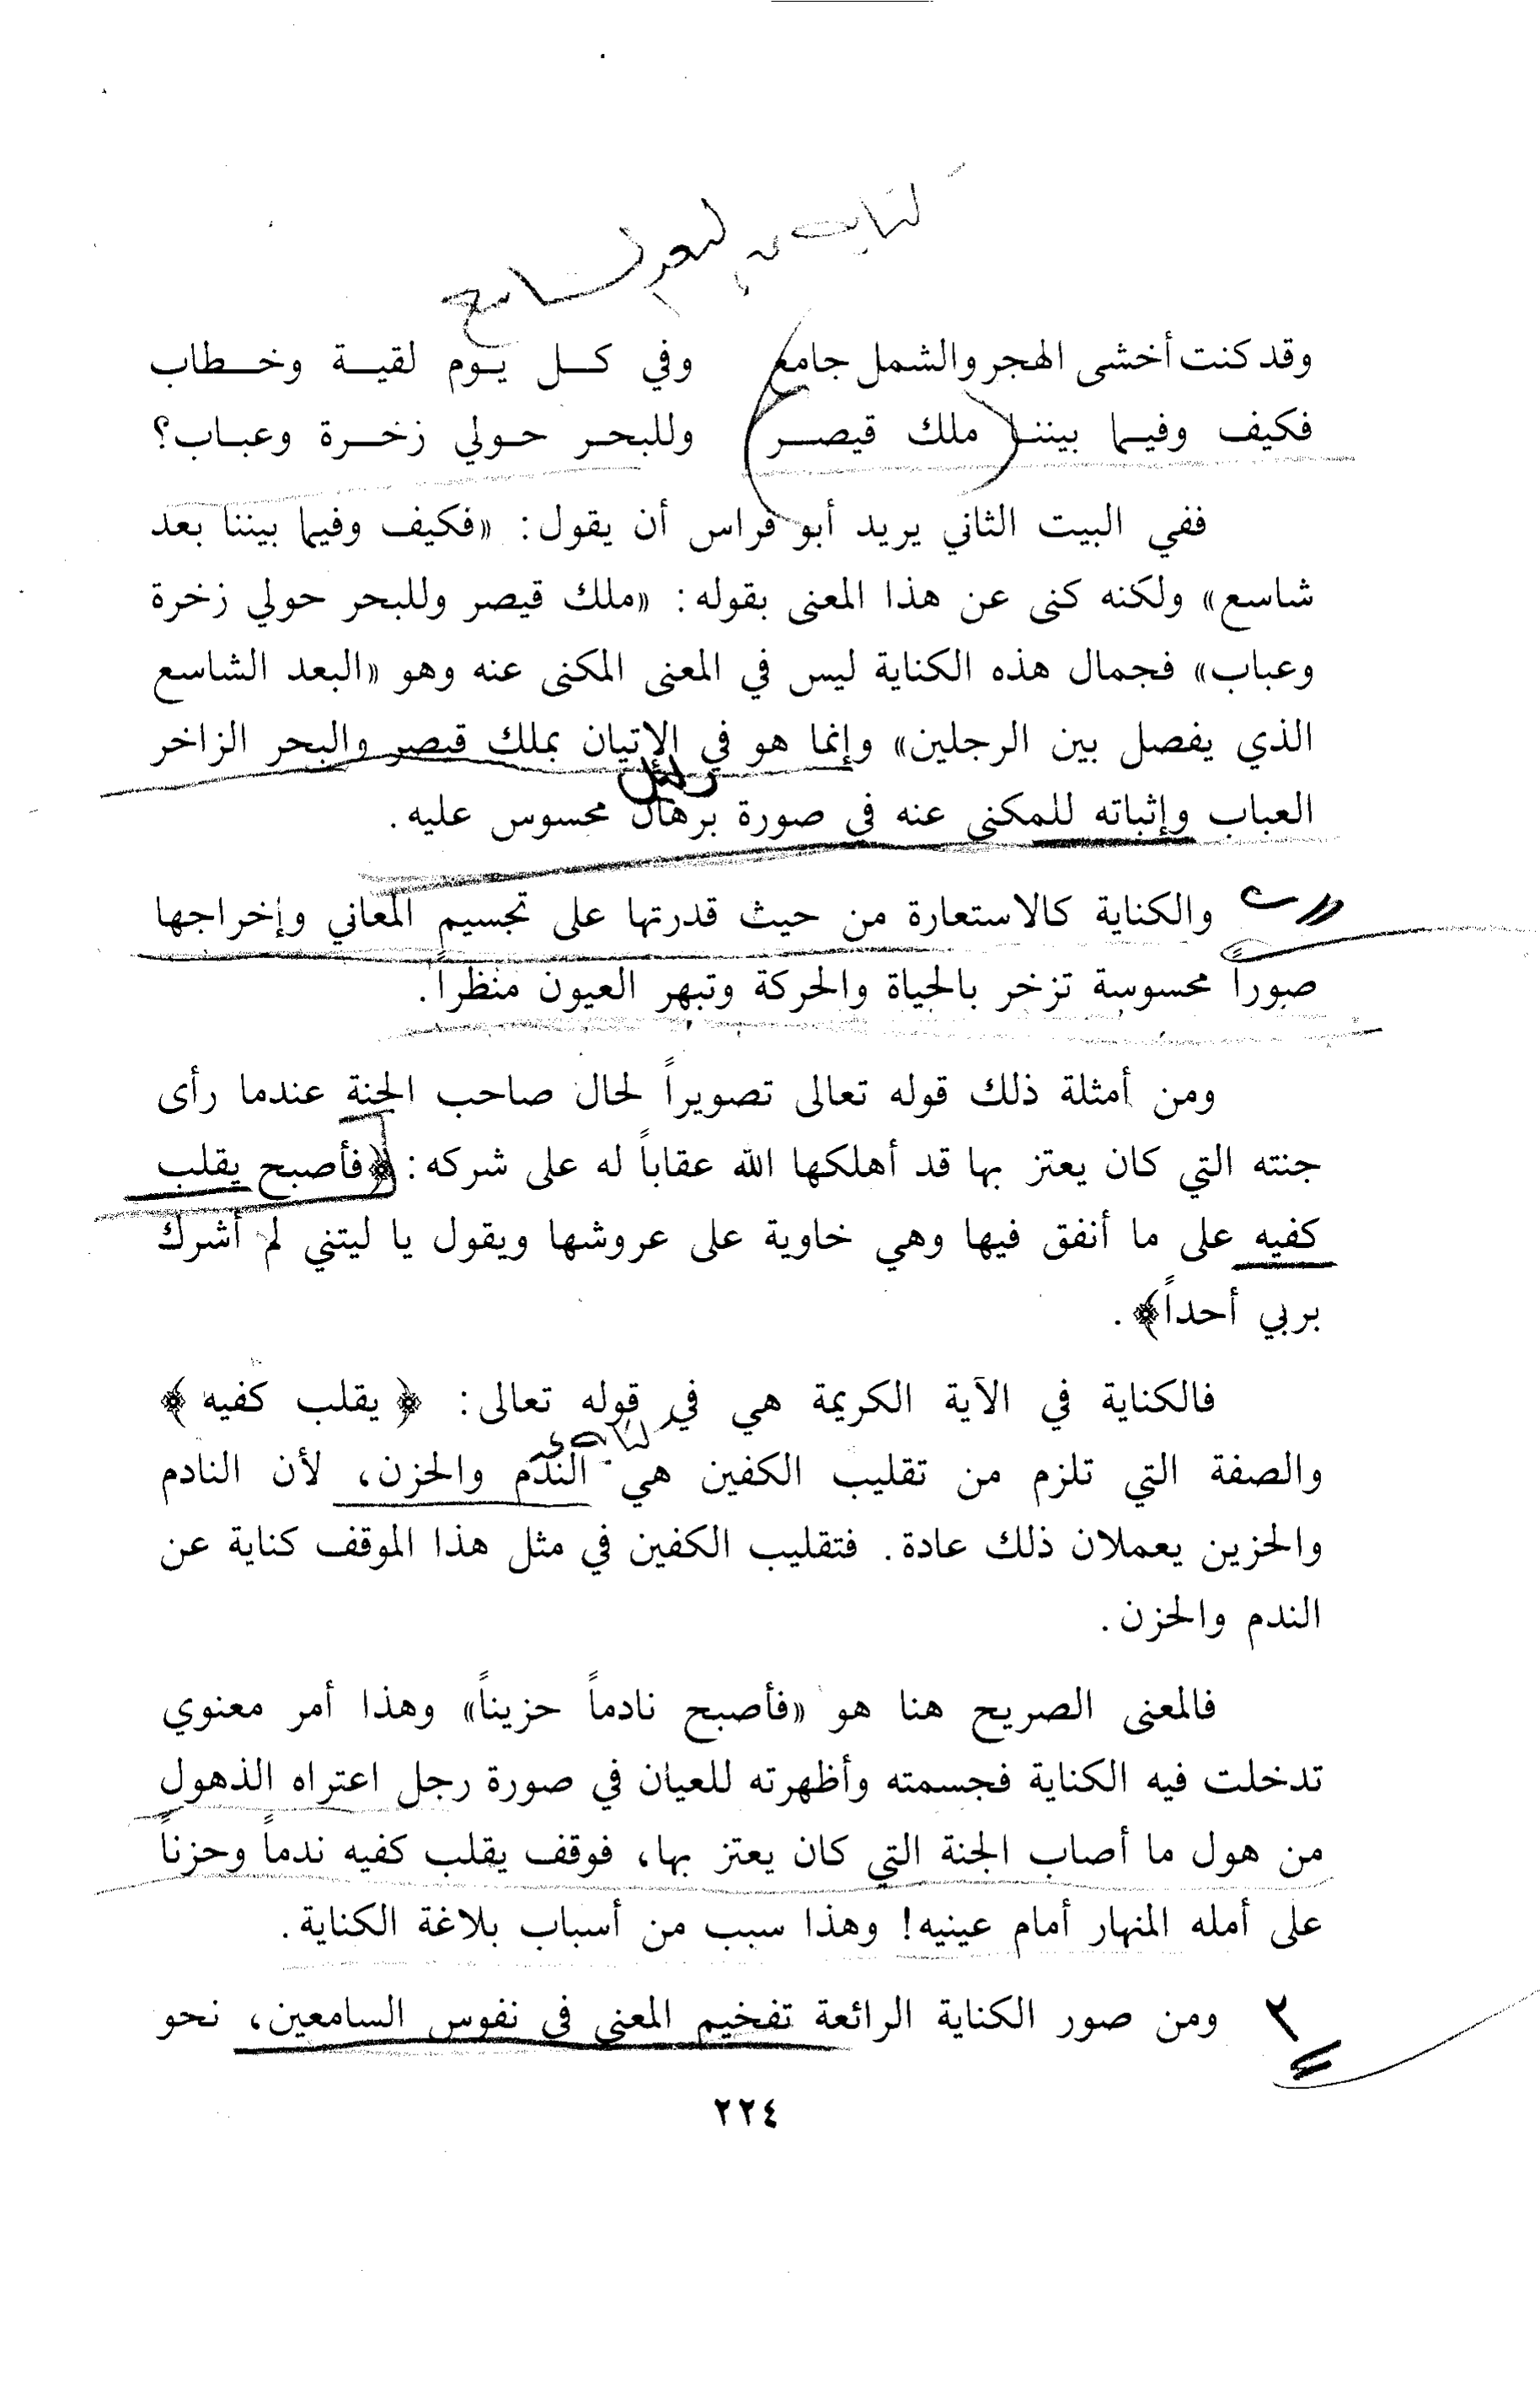 كناية عن البعد الشاسع
وقد كنت أخشى الهجر والشمل جامع وفي كل يوم لقية وخطاب
فكيف وفيما بيننا ملك قيصر وللبحر حولي زخرة وعباب؟
ففي البيت الثاني يريد أبو فراس أن يقول: «فكيف وفيما بيننا بعد
شاسع» ولكنه كنى عن هذا المعنى بقوله: «ملك قيصر وللبحر حولي زخرة
وعباب» فجمال هذه الكناية ليس في المعنى المكنى عنه وهو «البعد الشاسع
الذي يفصل بين الرجلين» وإنما هو في الإتيان بملك قيصر والبحر الزاخر
دليل
العباب وإثباته للمكنى عنه في صورة برهان محسوس عليه.
والكناية كالاستعارة من حيث قدرتها على تجسيم المعاني وإخراجها
صوراً محسوسة تزخر بالحياة والحركة وتبهر العيون منظراً.
ومن أمثلة ذلك قوله تعالى تصويراً لحال صاحب الجنة عندما رأى
جنته التي كان يعتز بها قد أهلكها الله عقاباً له على شركه: ﴿فأصبح يقلب
كفيه على ما أنفق فيها وهي خاوية على عروشها ويقول يا ليتني لم أشرك
بربي أحداً﴾.
فالكناية في الآية الكريمة هي في قوله تعالى: ﴿يقلب كفيه﴾
كناية عن
والصفة التي تلزم من تقليب الكفين هي الندم والحزن، لأن النادم
والحزين يعملان ذلك عادة. فتقليب الكفين في مثل هذا الموقف كناية عن
الندم والحزن.
فالمعنى الصريح هنا هو «فأصبح نادماً حزيناً» وهذا أمر معنوي
تدخلت فيه الكناية فجسمته وأظهرته للعيان في صورة رجل اعتراه الذهول
من هول ما أصاب الجنة التي كان يعتز بها، فوقف يقلب كفيه ندماً وحزناً
على أمله المنهار أمام عينيه! وهذا سبب من أسباب بلاغة الكناية.
٢ ومن صور الكناية الرائعة تفخيم المعنى في نفوس السامعين، نحو
٢٢٤